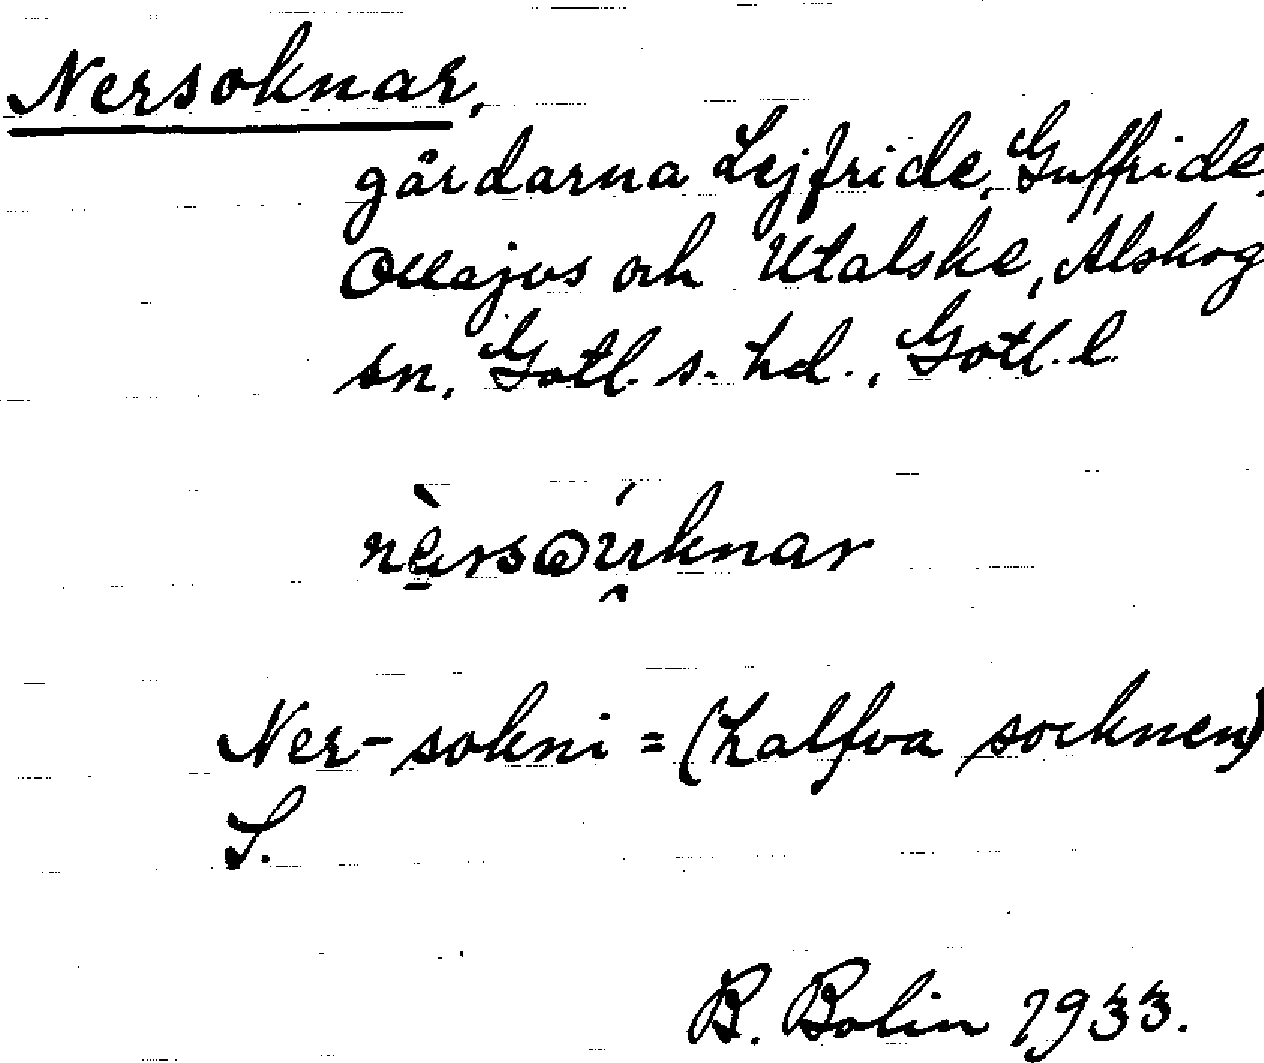 Nersoknar,
gårdarna Lejfride, Guffride,
Ollajvs och Utalske, Alskog
sn, Gotl. s. hd., Gotl. l
Ner-sokni = (halfva socknen)
S.
B. Bolin 1933.